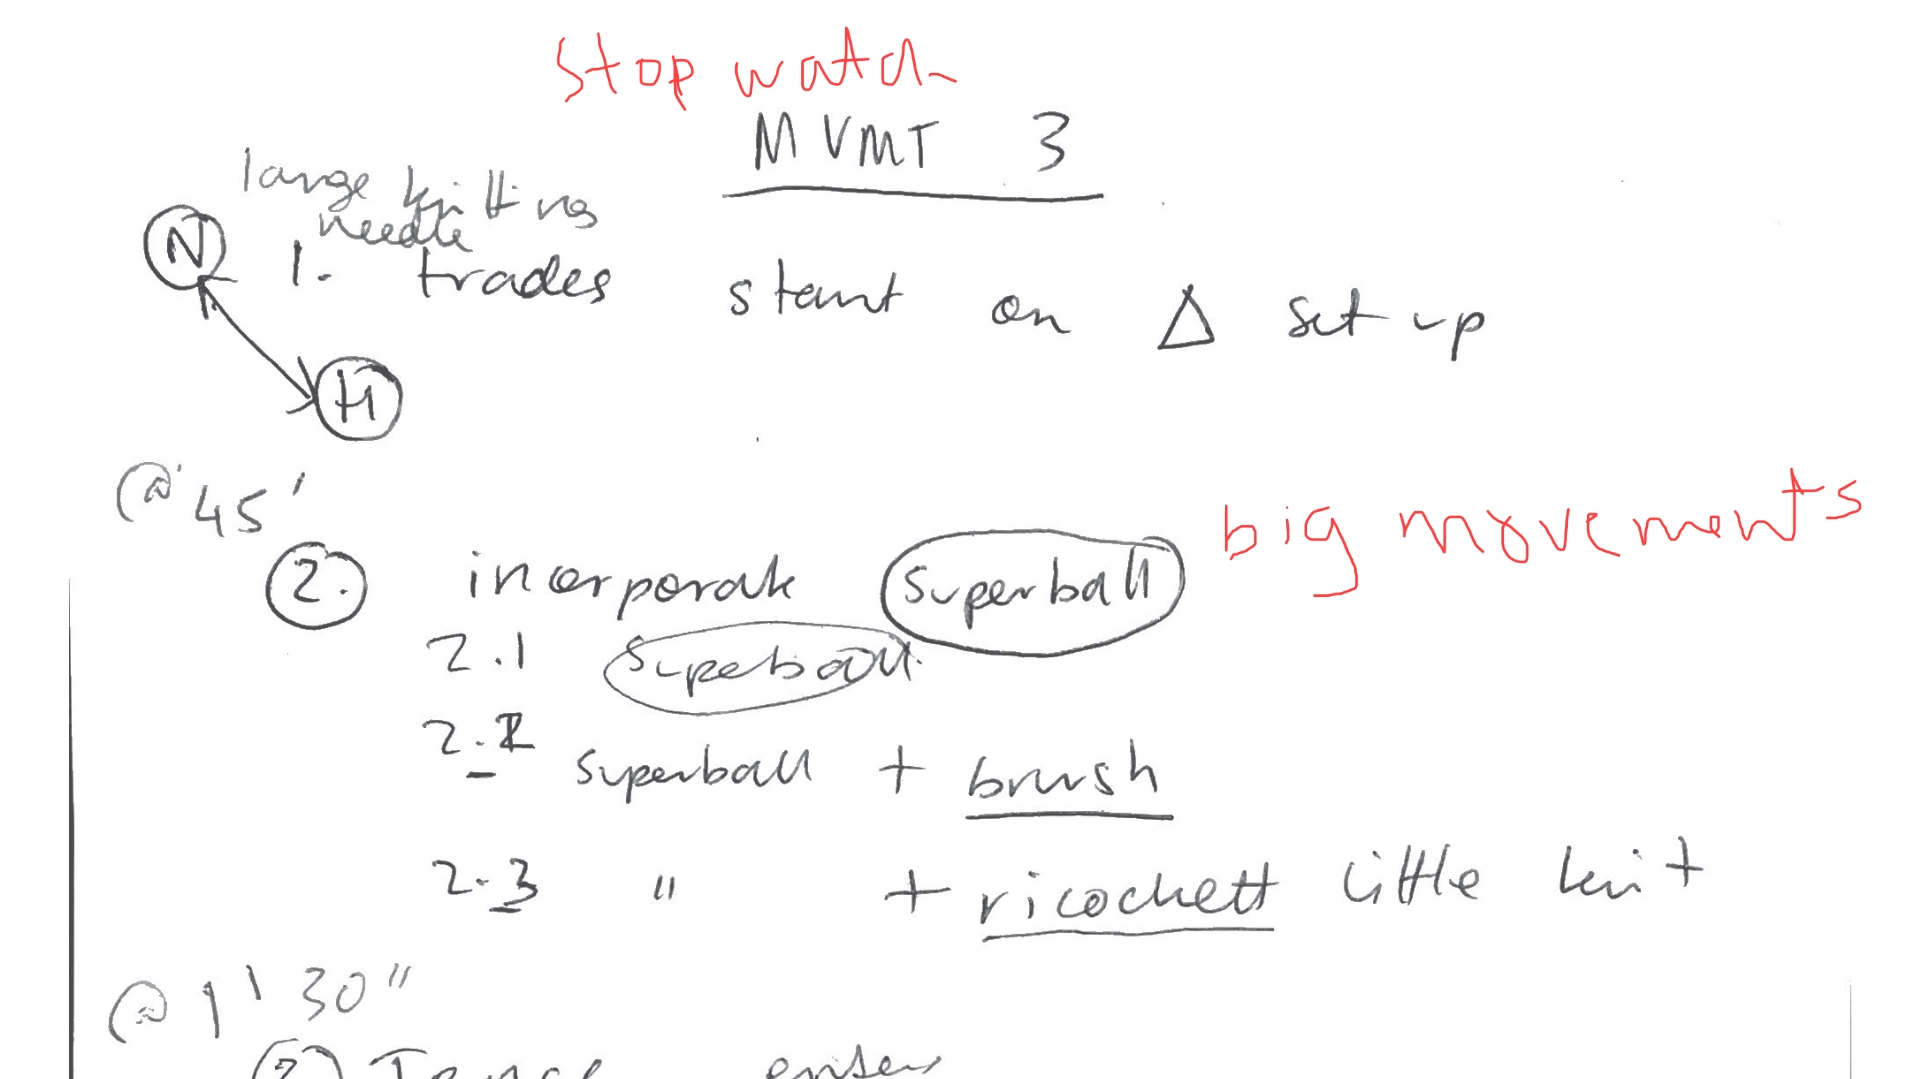 stop watch
MVMT 3
large knitting
needle
N
1. trades start on △ set up
H
@ 45'
big movements
2. incorporate superball
2.1 superball
2.2 superball + brush
2.3 " + ricochett little knit
@ 1' 30"
enter